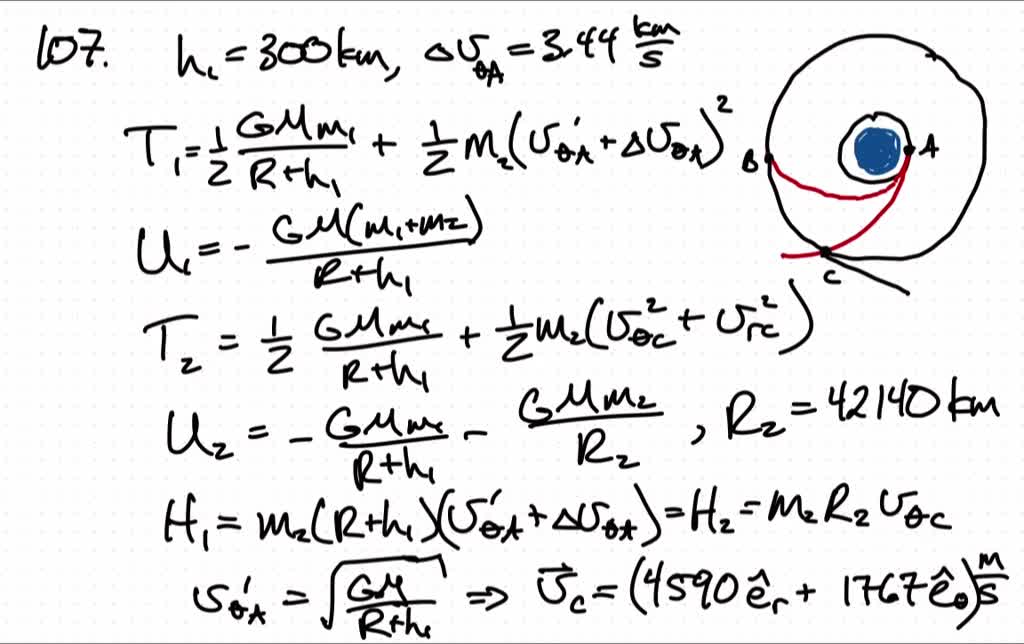 107. h₁ = 300 km, Δv_θA = 3.44 km/s
T₁ = 1/2 GMm₁/(R+h₁) + 1/2 m₂(v'_θA + Δv_θA)²
B
A
U₁ = - GM(m₁+m₂)/(R+h₁)
C
T₂ = 1/2 GMm₁/(R+h₁) + 1/2 m₂(v_θC² + v_rC²)
U₂ = - GMm₁/(R+h₁) - GMm₂/R₂, R₂ = 42140 km
H₁ = m₂(R+h₁)(v'_θA + Δv_θA) = H₂ = m₂R₂v_θC
v'_θA = √(GM/(R+h₁)) ⇒ v⃗_C = (4590 ê_r + 1767 ê_θ) m/s